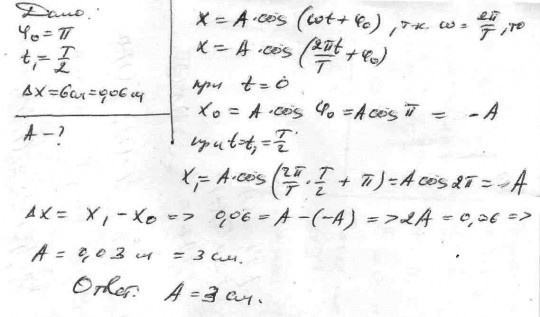 Дано:
φ₀ = π
t₁ = T/2
Δx = 6 см = 0,06 м
A - ?
x = A·cos(ωt + φ₀), т.к. ω = 2π/T, то
x = A·cos(2πt/T + φ₀)
при t = 0
x₀ = A·cos φ₀ = A cos π = -A
при t = t₁ = T/2
x₁ = A·cos(2π/T · T/2 + π) = A cos 2π = A
Δx = x₁ - x₀ => 0,06 = A - (-A) => 2A = 0,06 =>
A = 0,03 м = 3 см.
Ответ: A = 3 см.